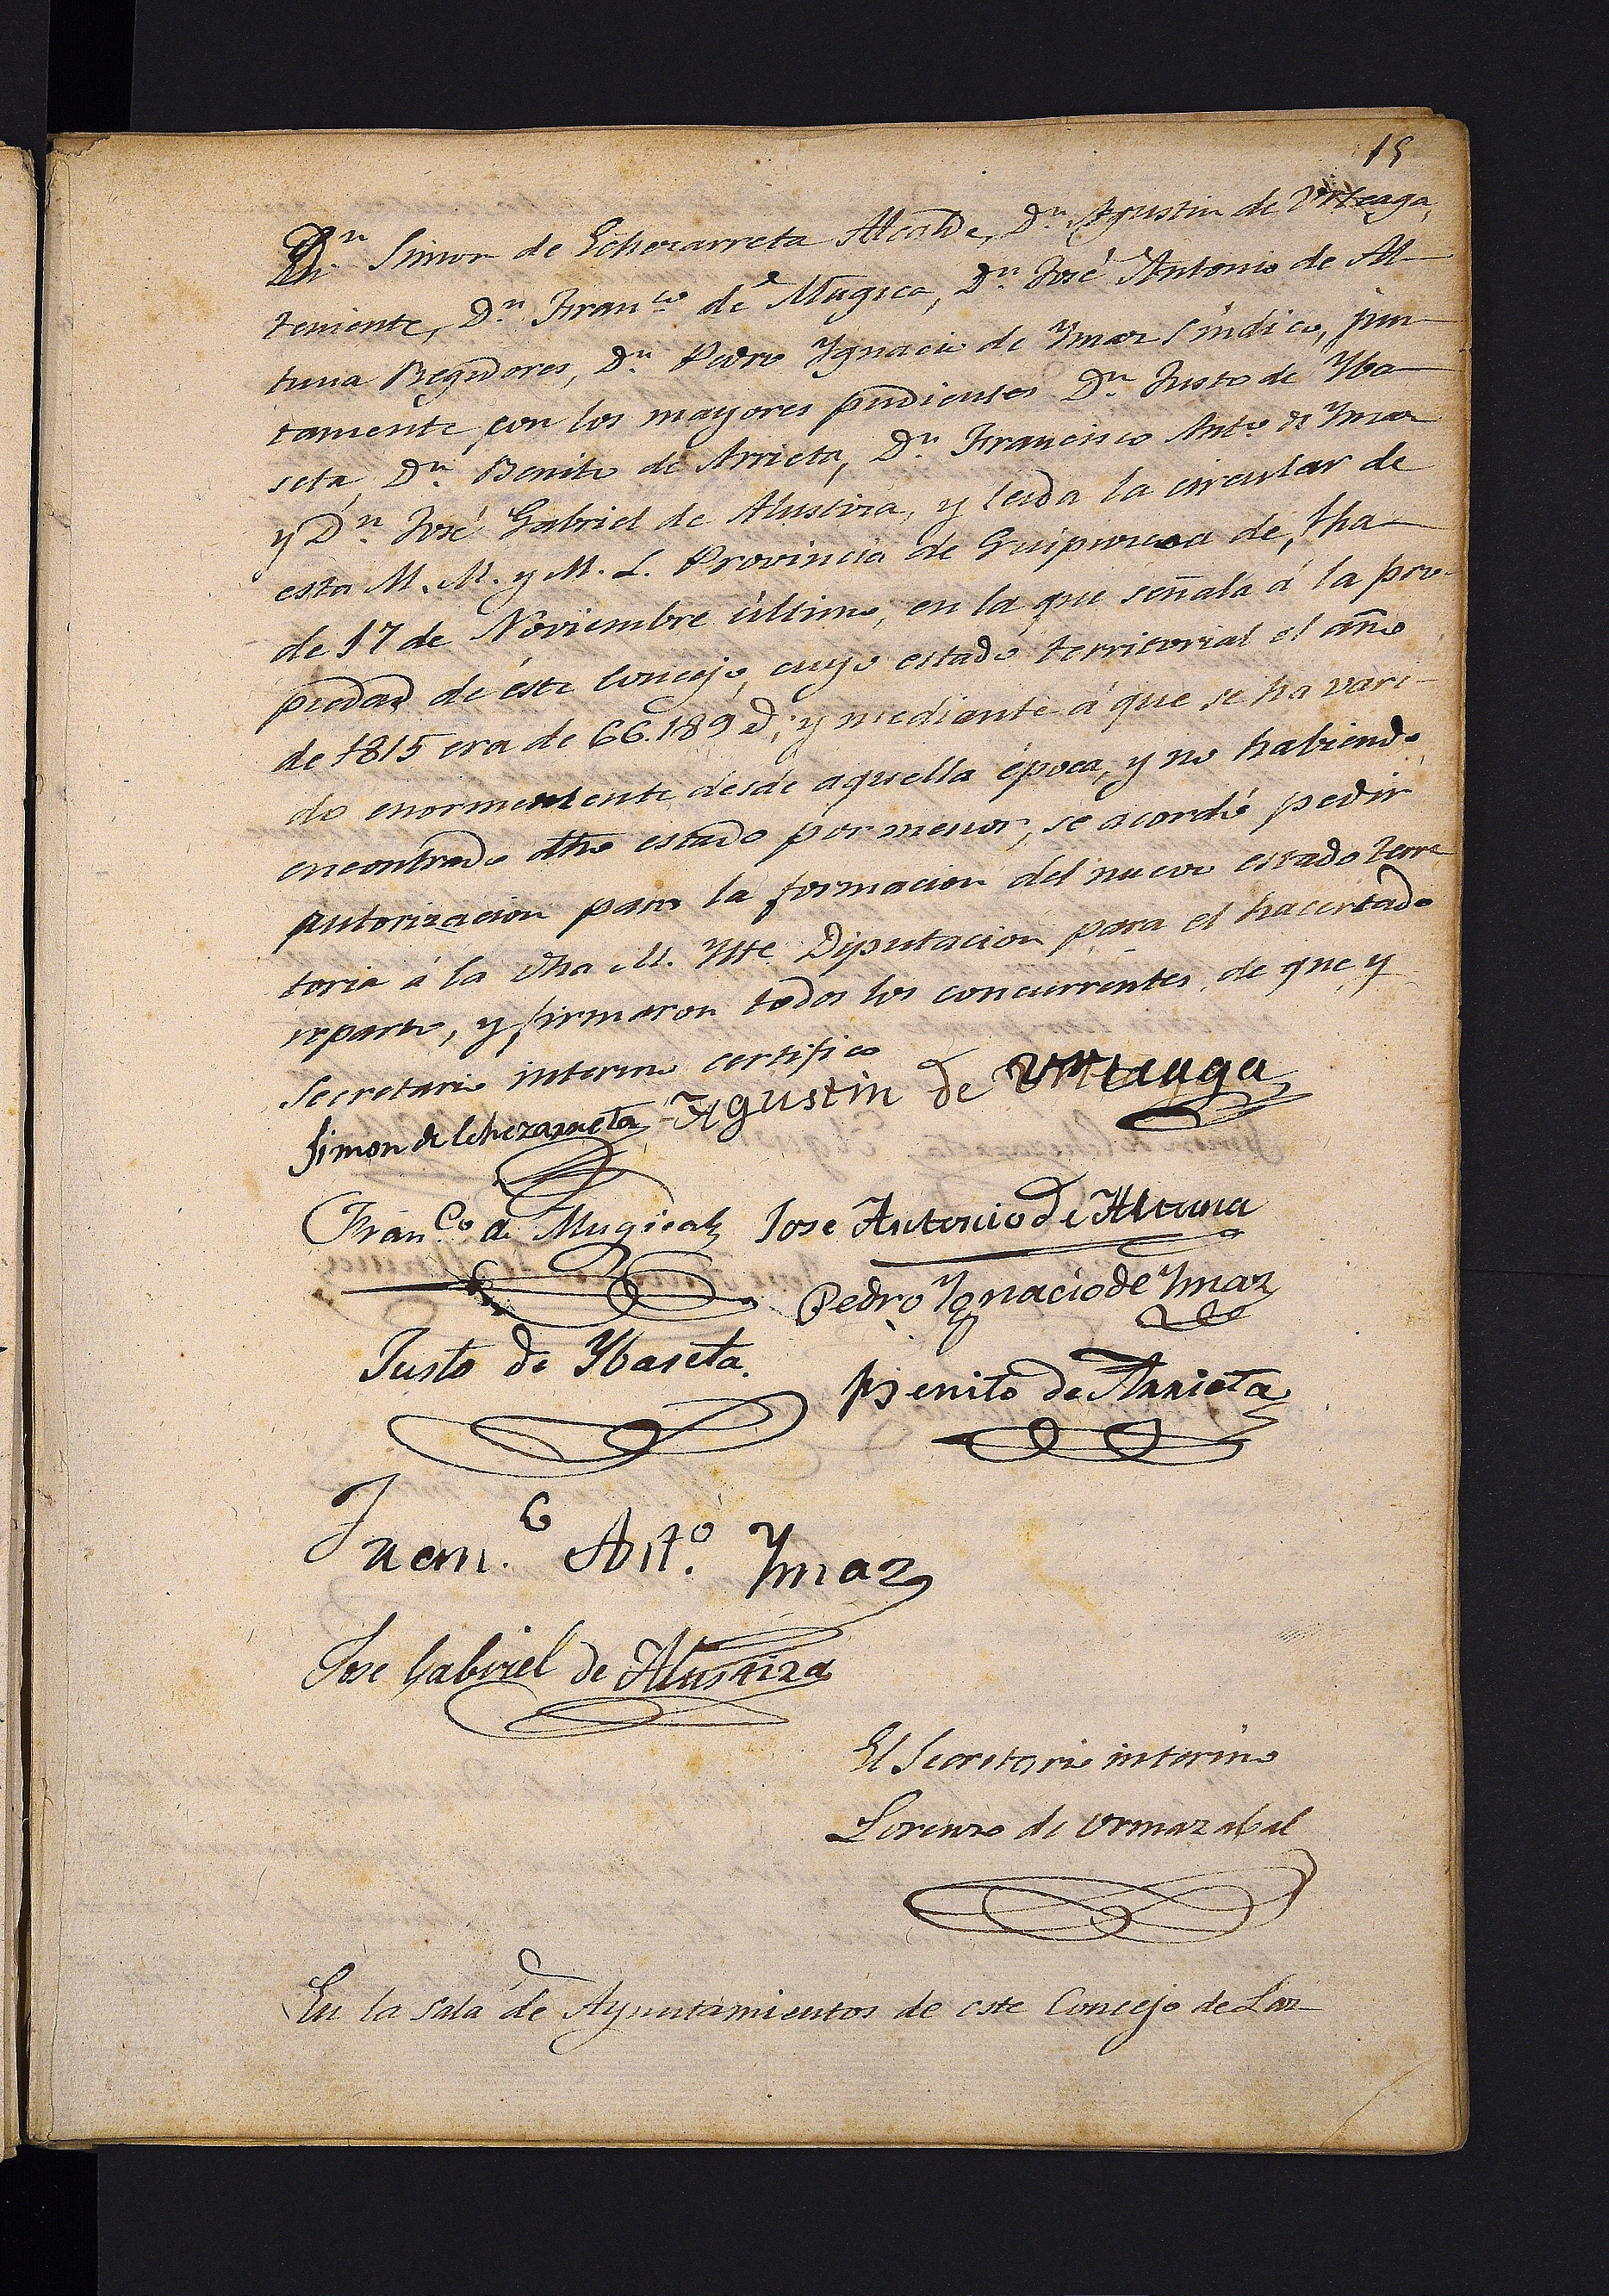 15
Dn Simon de Echezarreta Alcalde, Dn Agustin de Urteaga,
teniente, Dn Franco de Mugica, Dn José Antonio de Al-
tuna Regidores, Dn Pedro Ygnacio de Ymaz Síndico, jun-
tamente con los mayores pudientes Dn Justo de Yba-
seta, Dn Benito de Arrieta, Dn Francisco Anto de Ymaz
y Dn José Gabriel de Alustiza, y leida la circular de
esta M. N. y M. L. Provincia de Guipuzcoa de fha
de 17 de Noviembre último, en la que señala á la pro-
piedad de éste Concejo, cuyo estado territorial el año
de 1815 era de 66.189 d; y mediante á que se ha vari-
do enormemente desde aquella época, y no habiendo
encontrado dho estado por menor, se acordó pedir
autorizacion para la formacion del nuevo estado terri-
toria á la dha M. Ylte Diputacion para el hacertado
reparto, y firmaron todos los concurrentes, de que y
Secretario interino certifico
Simon de Echezarreta Agustin de Urteaga
Franco de Mugica Jose Antonio de Altuna
Pedro Ygnacio de Ymaz
Justo de Ybaseta.
Benito de Arrieta
Franco Anto Ymaz
Jose Gabriel de Alustiza
El Secretario interino
Lorenzo de Ormazabal
En la Sala de Ayuntamientos de este Concejo de Laz-